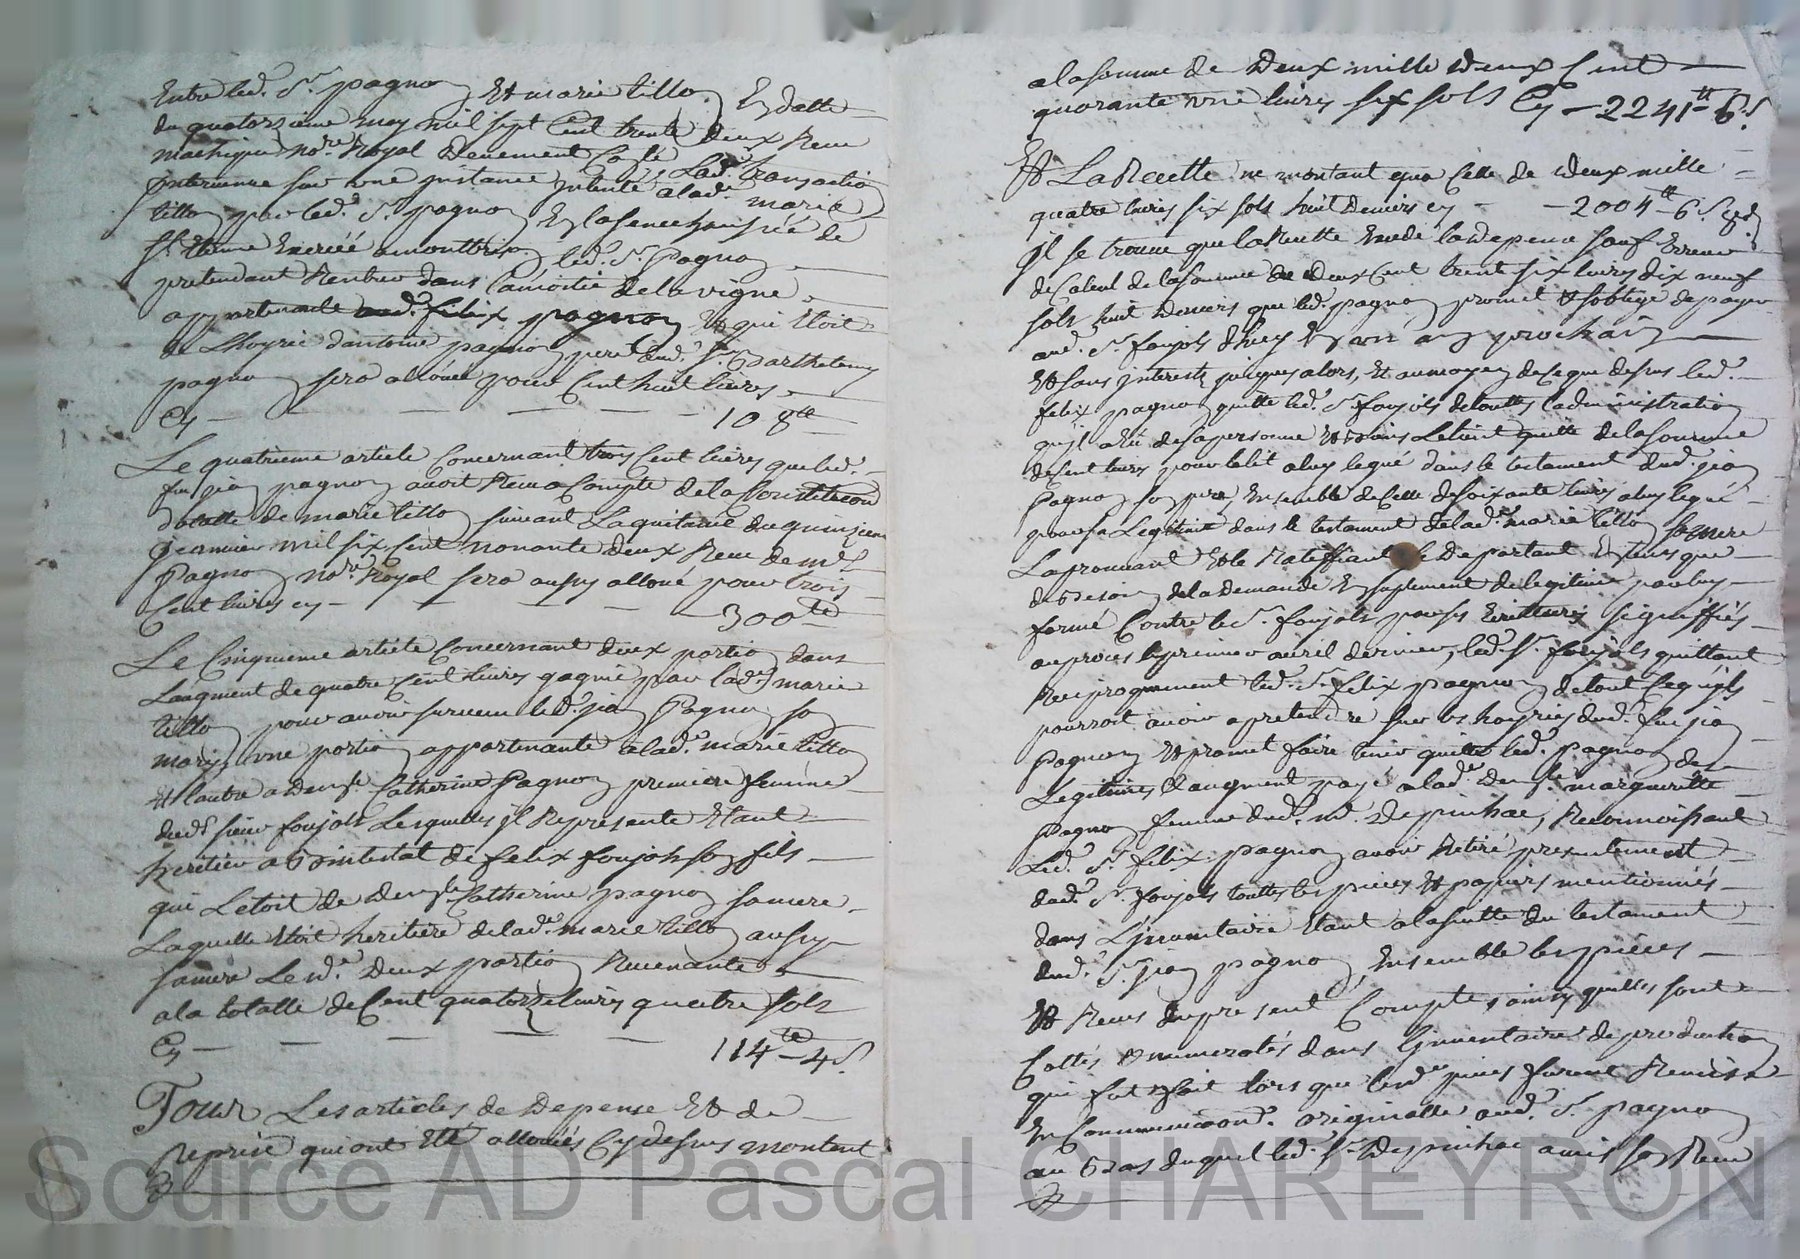 Entre led. Sr. pagnon Et marie tillon En datte
du quatorzieme may mil sept Cent trente deux Receu
not.re Royal Deuement Collé Lad.e transaction
intervenue sur une instance intentée a lad.e marie
tillon par led. Sr. pagnon En la senechaussée de
St. Etienne Exercée a montbrizon led. Sr. Pagnon
pretendant Rentrer dans la moitié de la vigne
appartenante aud. felix pagnon Et qui Etoit
de Lhoyrie dantoine pagnon pere dud. Sr. Barthelemy
pagnon sera alloué pour Cent huit livres
Cy — 108tt
Le quatrieme article Concernant trois Cent livres que led.
feu jean pagnon avoit Receu a Compte de la Constitution
dotalle de marie tillon suivant La quitance du quinzieme
jeanvier mil six Cent nonante deux Receu de me
Pagnon no.re Royal sera aussy alloué pour trois
Cent livres cy — 300tt
Le Cinquieme article Concernant deux portion dans
Laugment de quatre Cent livres gagné par lad.e marie
tillon pour avoir survecu led. jean Pagnon son
mary, une portion appartenante a lad.e marie tillon
Et lautre a dem.lle Catherine Pagnon premiere femme
dud. sieur foujols Lesquelles jl Represente Etant
heritier ab intestat de felix foujols son fils
qui Letoit de dem.lle Catherine pagnon sa mere
Laquelle Etoit heritiere de lad.e marie tillon aussy
sa mere Lesd.es deux portion Revenantes
a la totalle de Cent quatorze livres quatre sols
Cy — 114tt–4s.
Tous Les articles de Depense Et de
reprise qui ont Eté alloués Cy dessus montent
a la somme de Deux mille Deux Cent
quarante une livres six sols Cy — 2241tt–6s.
Et La Recette ne montant qua Celle de Deux mille
quatre livres six sols huit Deniers cy — 2004tt–6s. 8d.
jl se trouve que la Recette Excede la depence sauf Erreur
de Calcul de la somme de Deux Cent trente six livres dix neuf
sols huit Deniers que led. pagnon promet Et soblige de payer
aud. Sr. foujols dhuy En un an prochain
Et sans interestz jusques alors, Et au moyen de Ce que dessus led.
felix pagnon quitte led. Sr. foujols de toutte Ladministration
quil a Eü de sa personne Et biens Letient quitte de la somme
de Cent livres pour le lit a luy legué dans le testament dud. jean
Pagnon son pere, Ensemble de Celle de soixante livres a luy legué
pour sa Legitime dans le testament de lad.e marie tillon sa mere
Laprouvant Et le Ratiffiant se Departant En tems que
de Besoin de la demande En suplement de legitime par luy
formé Contre le Sr. foujols par ses Ecritures signiffiés
au proces le premier avril dernier, led. Sr. foujols quittant
Reciproquement led. Sr. felix pagnon de tout Ce quil
pourroit avoir a pretendre sur les hoyries dud. feu jean
Pagnon Et promet faire tenir quitte led. Pagnon des
Legitimes Et augment payé a lad.e dem.lle margueritte
pagnon femme dud. me. Despinhac, Reconnoissant
Led. Sr. felix pagnon avoir Retiré presentement
dud. Sr. foujols touttes les pieces Et papiers mentionnés
dans Linventaire Etant a la suitte du testament
dud. Sr. jean pagnon Ensemble les pieces
Et Receus du present Compte ainsy quelles sont
Cottés Et numerotés dans Linventaire de production
qui fut fait lors que lesd.es pieces furent Remises
En Communicaon. originalle aud. Sr. pagnon
au Bas duquel led. Sr. Despinhac a mis son Receu
Source AD Pascal CHAREYRON